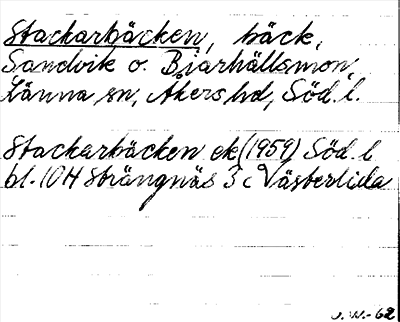 Stackarbäcken, bäck,
Sandvik o. Bjärhällsmon,
Länna sn, Åkers hd, Söd. l.
Stackarbäcken ek (1959) Söd. l
bl. 10H Strängnäs 3 c Västerlida
J.W.-62